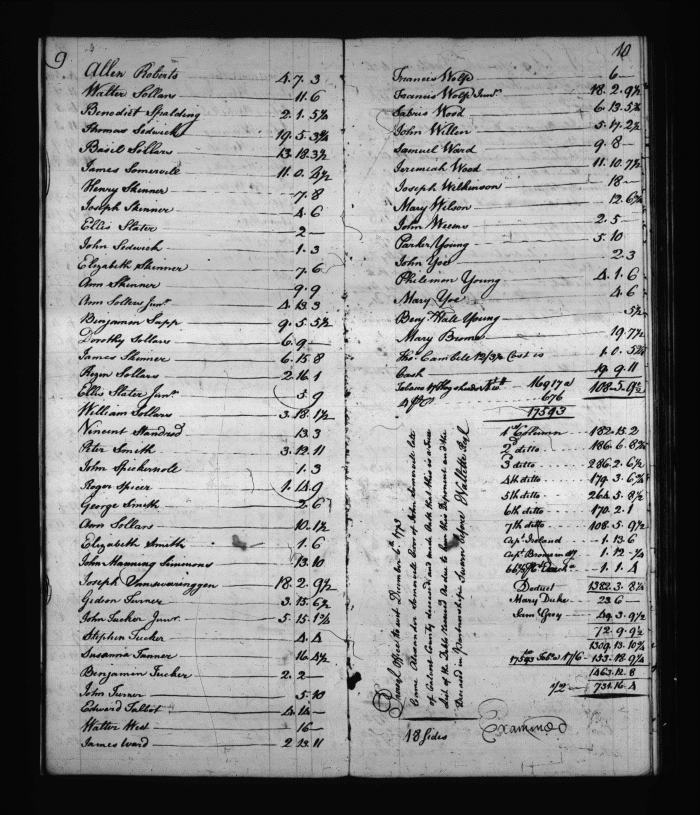 9
Allen Roberts 4.7.3
Walter Sollars 11.6
Benedist Spalding 2.1.5½
Thomas Sedwick 19.5.3¾
Basil Sollars 13.18.3½
James Somervell 11.0.4½
Henry Skinner 7.8
Joseph Skinner 4.6
Ellis Slater 2—
John Sedwick 1.3
Elizabeth Skinner 7.6
Ann Skinner 9.9
Ann Sollers Junr 4.13.3
Benjamin Sapp 9.5.5½
Dorothy Sollars 6.9—
James Skinner 6.15.8
Rezin Sollars 2.16.1
Ellis Slater Junr 5.9
William Sollars 3.18.1½
Vincent Standred 13.3
Peter Smith 3.12.11
John Spickernoll 1.3
Roger Spicer 1.14.9
George Smith 2.6
Ann Sollars 10.1½
Elizabeth Smith 1.6
John Manning Simmons 13.10
Joseph Vanswaringgen 18.2.9½
Gedion Turner 3.15.6½
John Tucker Junr 5.15.1¾
Stephen Tucker 4.4
Susanna Tanner 16.4½
Benjamin Tucker 2.2—
John Turner 5.10
Edward Talbot 4.14—
Walter West 16—
James Ward 2.13.11
10
Francis Wolfe 6—
Francis Wolfe Junr 18.2.9½
Sabret Wood 6.13.5¾
John Willen 5.17.2½
Samuel Ward 9.8—
Jeremiah Wood 11.10.7½
Joseph Wilkinson 18—
Mary Wilson 12.6¾
John Weems 2.5—
Parker Young 5.10
John Yoe 2.3
Philemon Young 4.1.6
Mary Yoe 4.6
Benjn Hall Young 5½
Mary Brome 19.7½
Thos Cambell 12/3½ Cost is 1.0.5¾
Cash 19.9.11
108.5.9½
16917 a
676
17593
1st Collumn 182.15.2
2d ditto 186.6.8¾
3 ditto 286.2.6½
4th ditto 179.3.6¾
5th ditto 264.5.8½
6th ditto 170.2.1
7th ditto 108.5.9½
Capt Ireland 1.13.6
Capt Brome 1.12.
1.1.4
1382.3.8¼
Deduct
Mary Duke 23.6—
Saml Grey 49.3.9½
72.9.9½
1309.13.10¾
17593 Tobo @ 17/6 153.18.9¼
1463.12.8
1/2 731.16.4
Prerog Office to wit December 6th 1773
Came Alexander Somervell Exor of John Somervell late
of Calvert County deceased and made Oath that this is a true
List of the Debts received As due to him this Deponent and the
Deceased in Partnership Sworn before
18 Sides
Examined